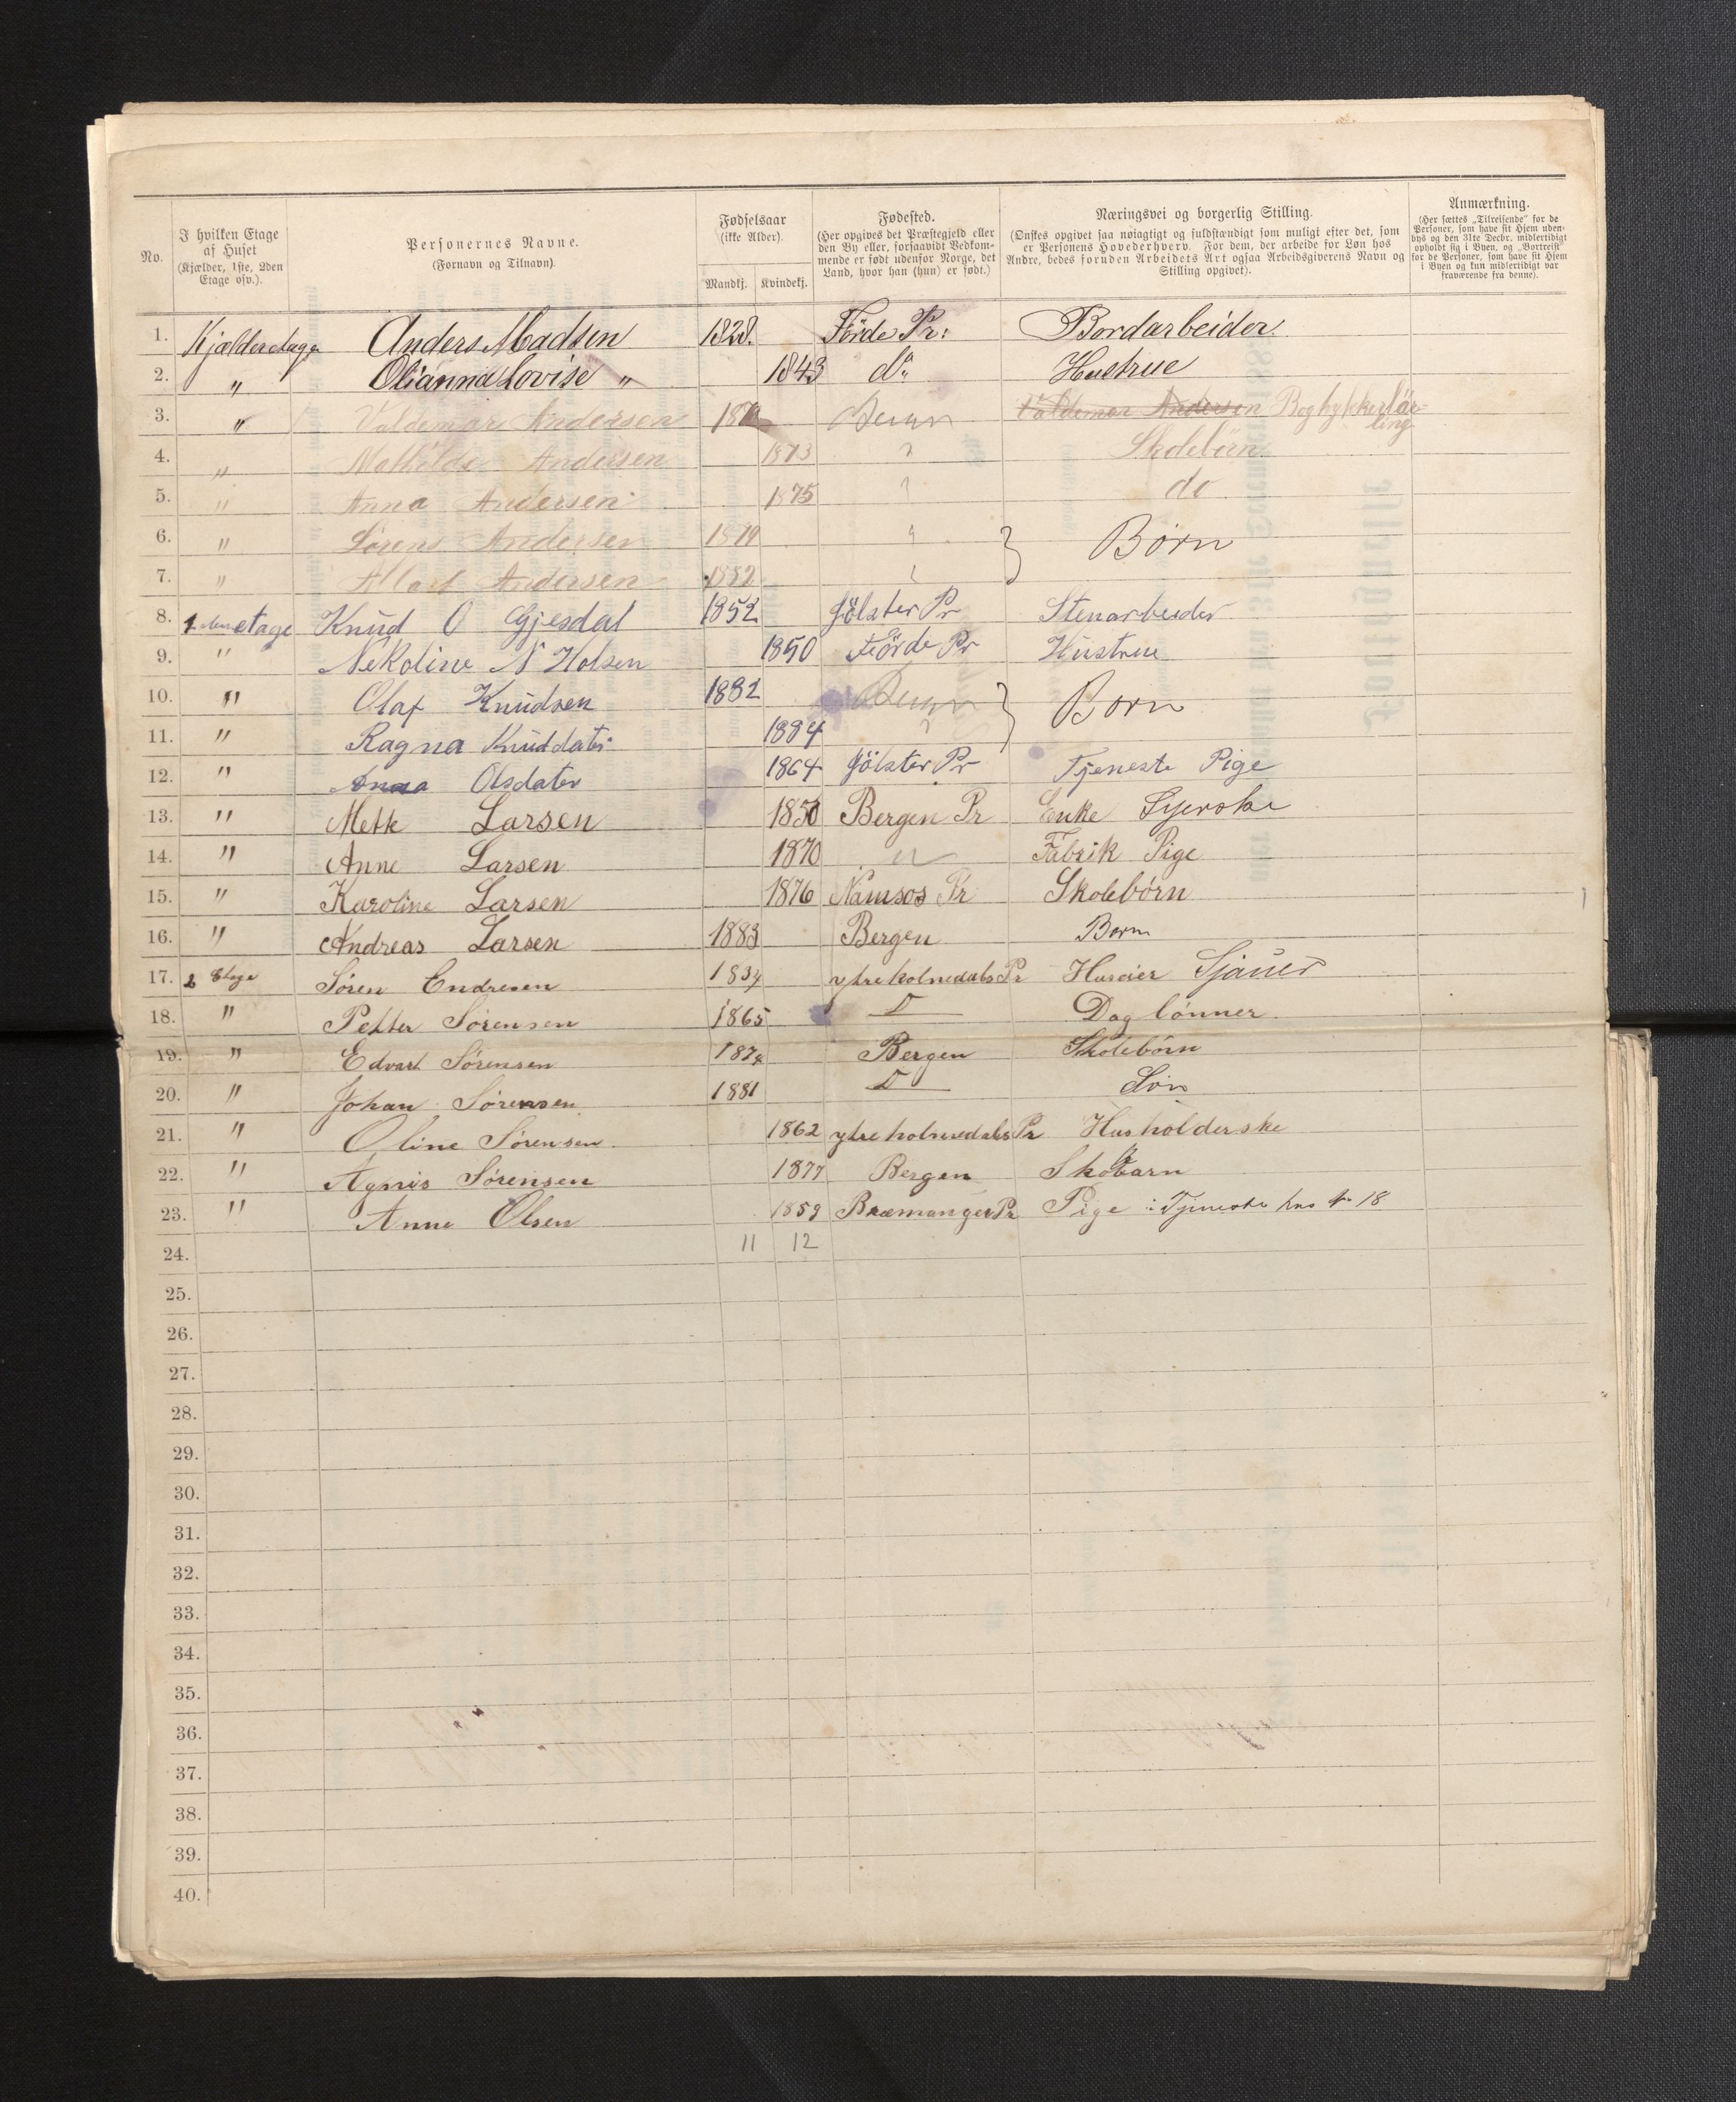 No.
I hvilken Etage af Huset (Kjælder, 1ste, 2den Etage osv.).
Personernes Navne. (Fornavn og Tilnavn).
Fødselsaar (ikke Alder). Mandkj. Kvindekj.
Fødested. (Her opgives det Præstegjeld eller den By eller, forsaavidt Vedkommende er født udenfor Norge, det Land, hvor han (hun) er født.)
Næringsvei og borgerlig Stilling. (Ønskes opgivet saa nøiagtigt og fuldstændigt som muligt efter det, som er Personens Hovederhverv. For dem, der arbeide for Løn hos Andre, bedes foruden Arbeidets Art ogsaa Arbeidsgiverens Navn og Stilling opgivet).
Anmærkning. (Her sættes „Tilreisende" for de Personer, som have sit Hjem udenbys og den 31te Decbr. midlertidigt opholdt sig i Byen, og „Bortreist" for de Personer, som have sit Hjem i Byen og kun midlertidigt var fraværende fra denne).
1. Kjælderetage Anders Madsen 1828. Förde Pr: Bordarbeider
2. " Olianna Lovise " 1843 do Hustrue
3. " Valdemar Andersen Bergen Valdemar Andersen Bogtrykkerlärling
4. " Mathilde Andersen 1873 " Skolebörn
5. " Anna Andersen 1875 " do
6. " Sørens Andersen 1879 " } Børn
7. " Andersen 1882 "
8. 1 etage Knud O Gjesdal 1852 Jölster Pr Stenarbeider
9. " Nekoline N Holsen 1850 Förde Pr Hustrue
10. " Olaf Knudsen 1882 Bergen } Born
11. " Ragna Knudsdatr 1884 "
12. " Anna Olsdater 1864 Jölster Pr Tjeneste Pige
13. " Mette Larsen 1850 Bergen Pr Enke Syerske
14. " Anne Larsen 1870 " Fabrik Pige
15. " Karoline Larsen 1876 Namsos Pr Skolebørn
16. " Andreas Larsen 1883 Bergen Born
17. 2 Etage Sören Endresen 1834 ytre holmedals Pr Huseier Sjauer
18. " Petter Sörensen 1865 D Daglönner
19. " Edvart Sörensen 1874 Bergen Skolebörn
20. " Johan Sörensen 1881 D Sön
21. " Oline Sörensen 1862 ytre holmedals Pr Husholderske
22. " Agnis Sörensen 1877 Bergen Skolebarn
23. " Anne Olsen 1859 Bræmanger Pr Pige i Tjeneste hos No 18
24. 11 12
25.
26.
27.
28.
29.
30.
31.
32.
33.
34.
35.
36.
37.
38.
39.
40.